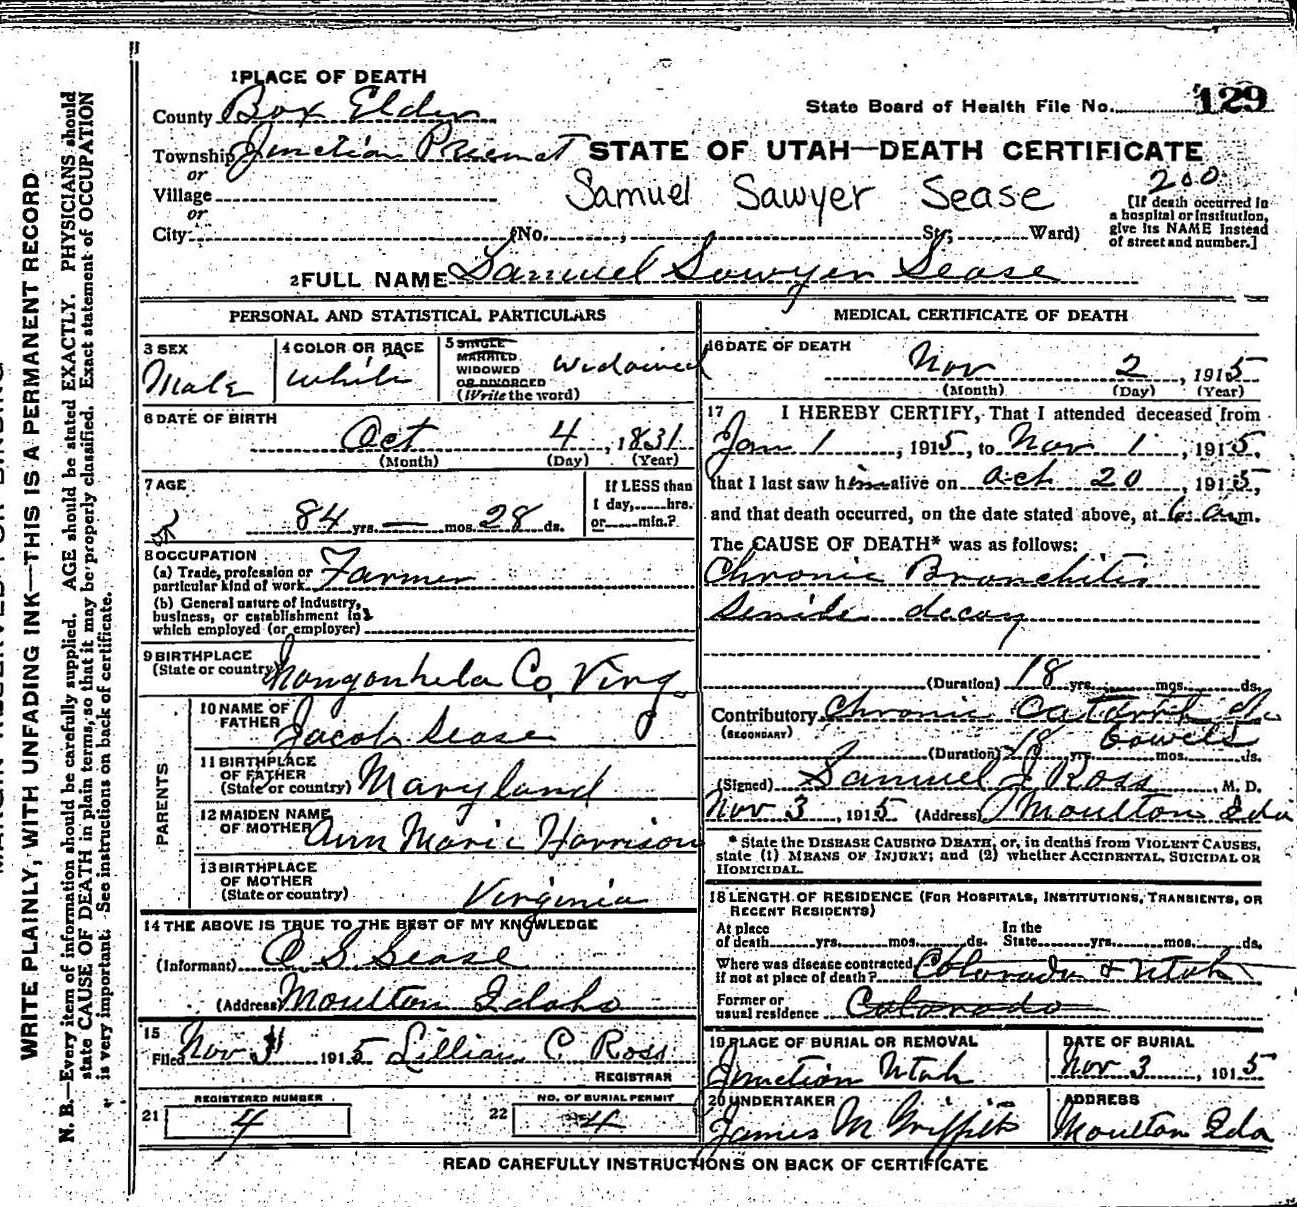 1 PLACE OF DEATH
County Box Elder
State Board of Health File No. 129
Township Junction Precinct
or
Village
or
City (No. , St; Ward)
STATE OF UTAH—DEATH CERTIFICATE
Samuel Sawyer Sease
200
[If death occurred in
a hospital or institution,
give its NAME instead
of street and number.]
2 FULL NAME Samuel Sawyer Sease
PERSONAL AND STATISTICAL PARTICULARS
3 SEX
Male
4 COLOR OR RACE
White
5 SINGLE
MARRIED
WIDOWED
OR DIVORCED
(Write the word)
Widowed
6 DATE OF BIRTH
Oct 4, 1831
(Month) (Day) (Year)
7 AGE
84 yrs. — mos. 28 ds.
If LESS than
1 day, hrs.
or min.?
8 OCCUPATION
(a) Trade, profession or
particular kind of work. Farmer
(b) General nature of industry,
business, or establishment in
which employed (or employer)
9 BIRTHPLACE
(State or country) Mongonhela Co, Virg
PARENTS
10 NAME OF
FATHER Jacob Sease
11 BIRTHPLACE
OF FATHER
(State or country) Maryland
12 MAIDEN NAME
OF MOTHER Ann Marie Harrison
13 BIRTHPLACE
OF MOTHER
(State or country) Virginia
14 THE ABOVE IS TRUE TO THE BEST OF MY KNOWLEDGE
(Informant) O S Sease
(Address) Moulton Idaho
15
Filed Nov 3 1915 Lillian C Ross
REGISTRAR
REGISTERED NUMBER
21 4
NO. OF BURIAL PERMIT
22 4
MEDICAL CERTIFICATE OF DEATH
16 DATE OF DEATH
Nov 2, 1915
(Month) (Day) (Year)
17 I HEREBY CERTIFY, That I attended deceased from
Jan 1, 1915, to Nov 1, 1915,
that I last saw him alive on Oct 20, 1915,
and that death occurred, on the date stated above, at 6 a.m.
The CAUSE OF DEATH* was as follows:
Chronic Bronchitis
Senile decay
(Duration) 18 yrs. mos. ds.
Contributory Chronic Catarrh of
(SECONDARY) bowels
(Duration) 18 yrs. mos. ds.
(Signed) Samuel J Ross, M. D.
Nov 3, 1915 (Address) Moulton Ida
* State the DISEASE CAUSING DEATH, or, in deaths from VIOLENT CAUSES,
state (1) MEANS OF INJURY; and (2) whether ACCIDENTAL, SUICIDAL OR
HOMICIDAL.
18 LENGTH OF RESIDENCE (FOR HOSPITALS, INSTITUTIONS, TRANSIENTS, OR
RECENT RESIDENTS)
At place In the
of death yrs. mos. ds. State yrs. mos. ds.
Where was disease contracted
if not at place of death? Colorado & Utah
Former or
usual residence Colorado
19 PLACE OF BURIAL OR REMOVAL
Junction Utah
DATE OF BURIAL
Nov 3, 1915
20 UNDERTAKER
James M Griffits
ADDRESS
Moulton Ida
READ CAREFULLY INSTRUCTIONS ON BACK OF CERTIFICATE
WRITE PLAINLY, WITH UNFADING INK—THIS IS A PERMANENT RECORD
N. B.—Every item of information should be carefully supplied. AGE should be stated EXACTLY. PHYSICIANS should
state CAUSE OF DEATH in plain terms, so that it may be properly classified. Exact statement of OCCUPATION
is very important. See instructions on back of certificate.